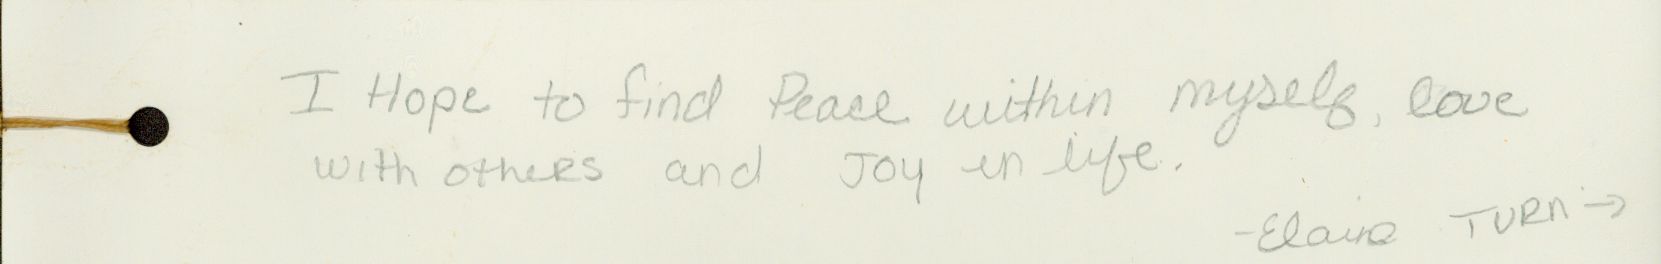 I Hope to find Peace within myself, love
with others and Joy in life.
-Elaine TURN →